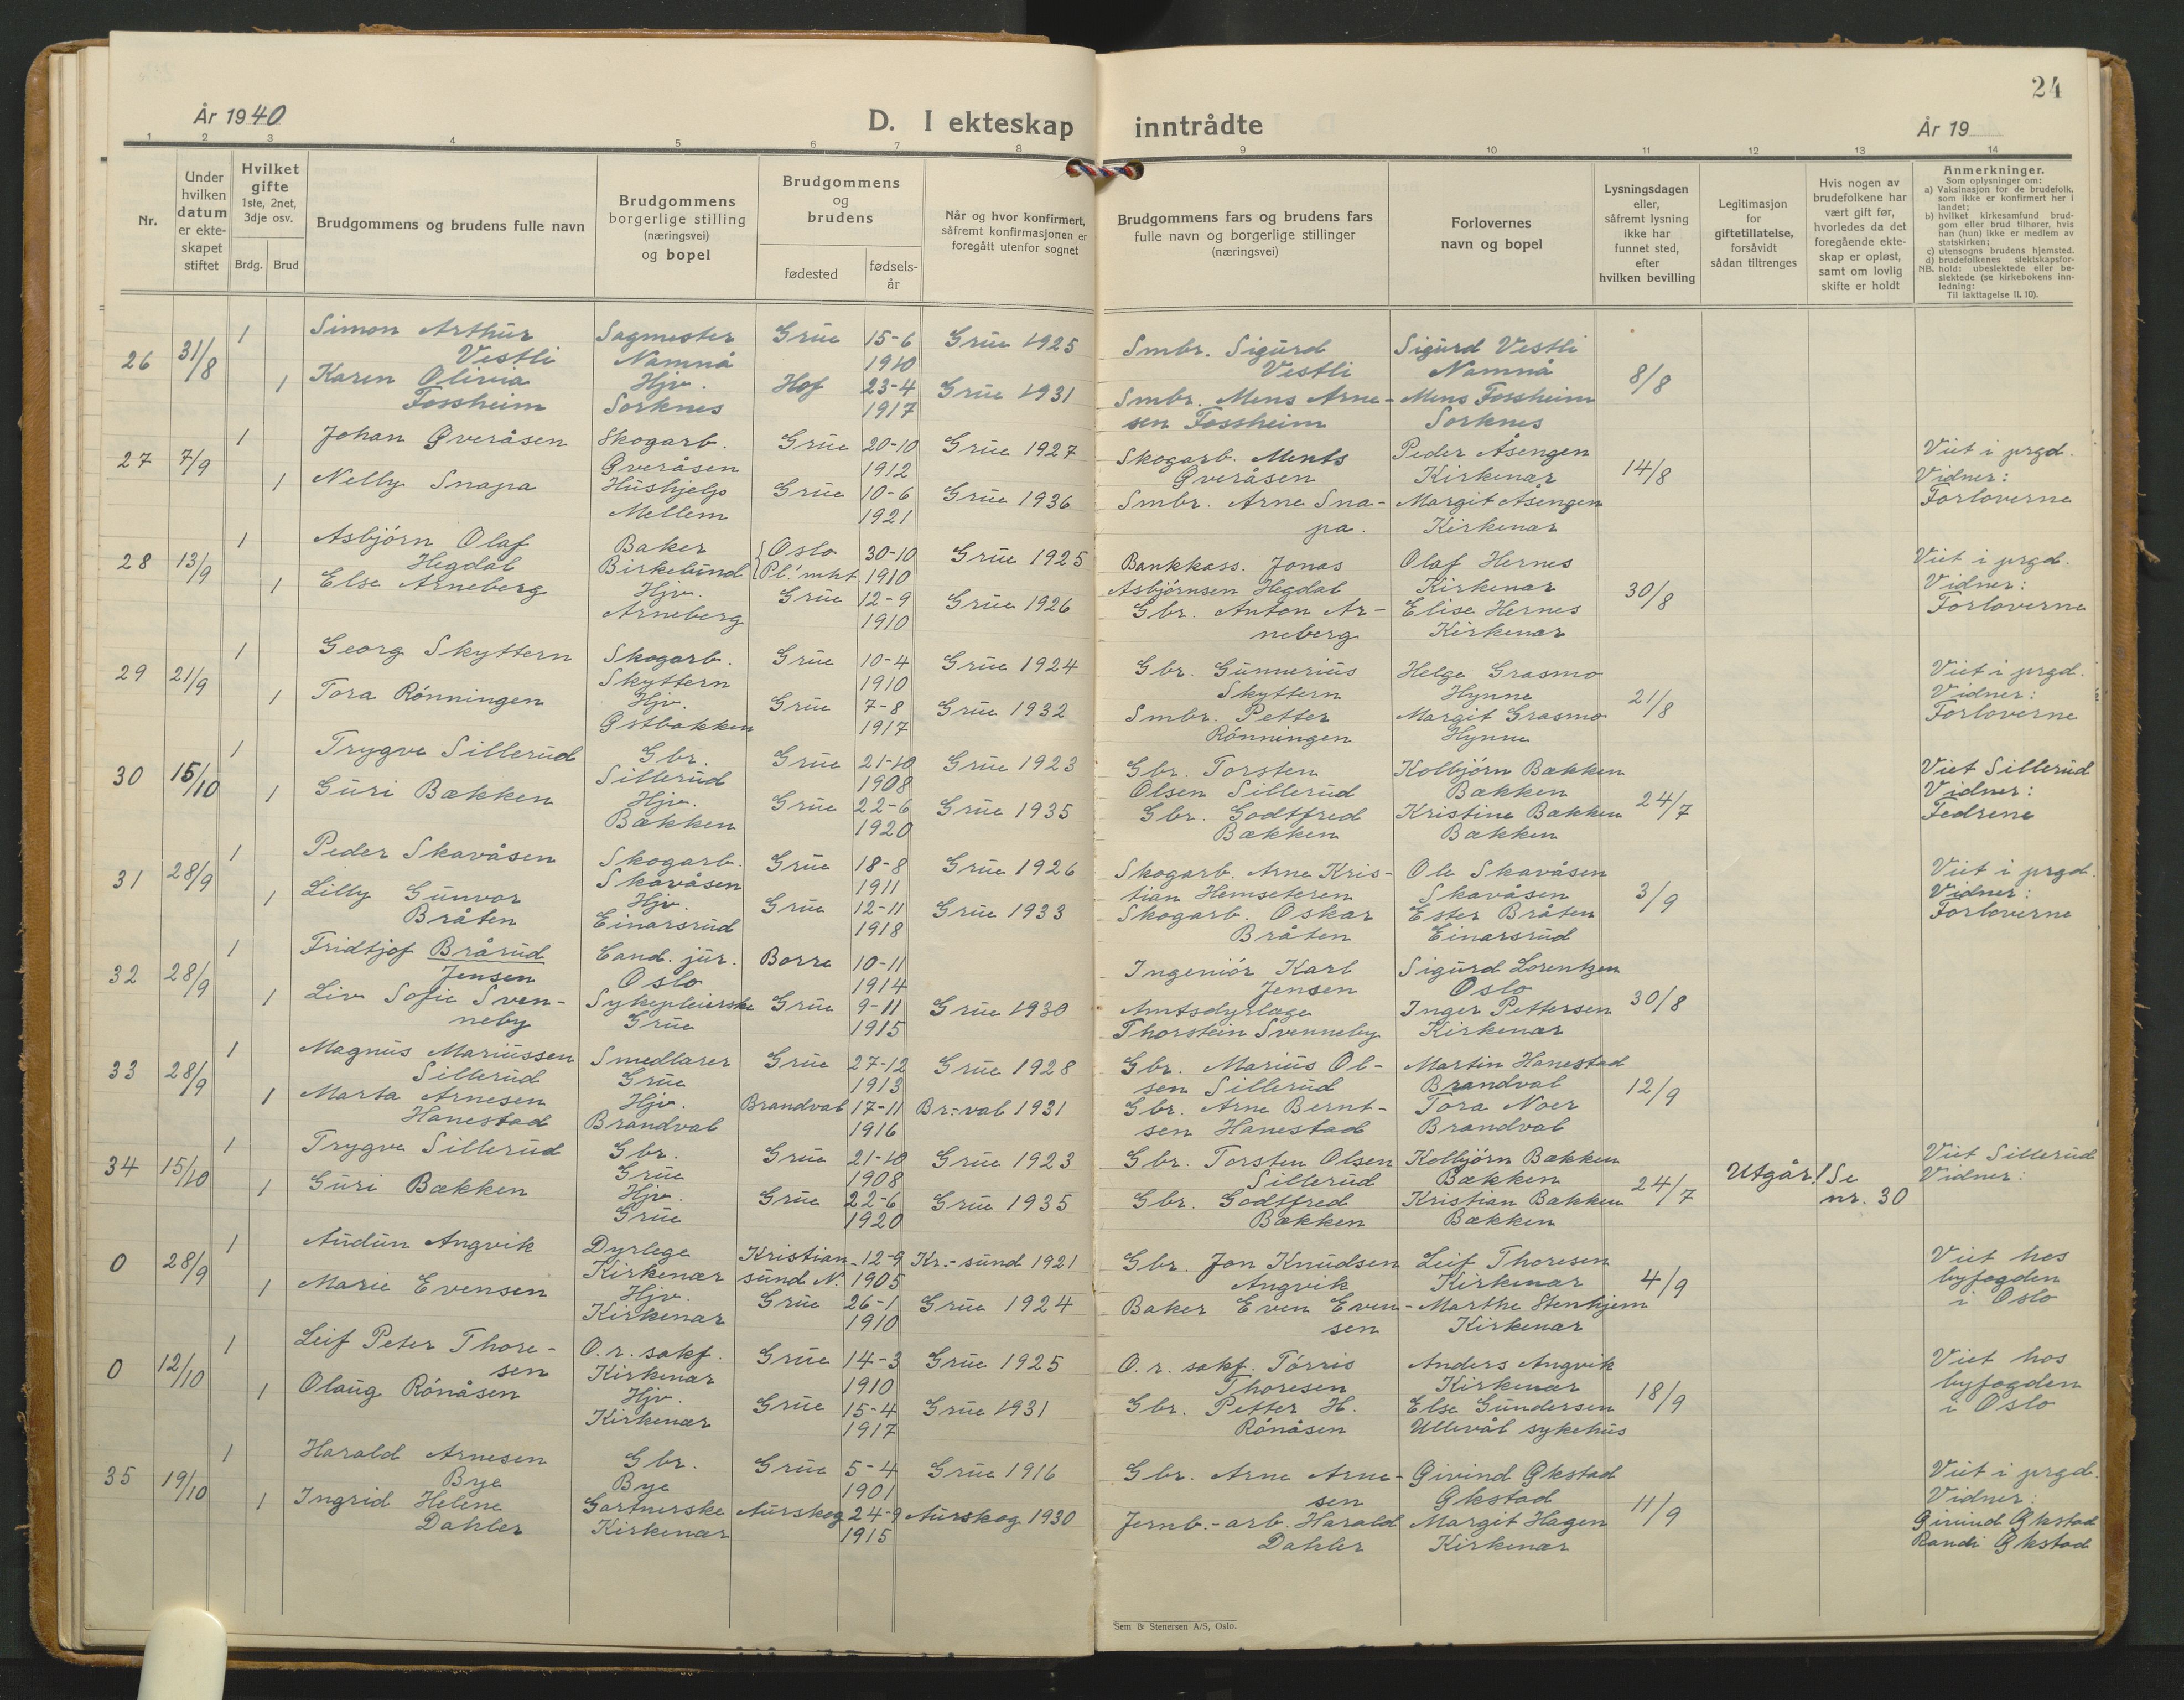 24
År 1940
D. I ekteskap inntrådte
År 19
1 2 3 4 5 6 7 8 9 10 11 12 13 14
Nr.
Under hvilken datum er ekteskapet stiftet
Hvilket gifte 1ste, 2net, 3dje osv.
Brdg. Brud
Brudgommens og brudens fulle navn
Brudgommens borgerlige stilling (næringsvei) og bopel
Brudgommens og brudens
fødested fødsels-år
Når og hvor konfirmert, såfremt konfirmasjonen er foregått utenfor sognet
Brudgommens fars og brudens fars fulle navn og borgerlige stillinger (næringsvei)
Forlovernes navn og bopel
Lysningsdagen eller, såfremt lysning ikke har funnet sted, efter hvilken bevilling
Legitimasjon for giftetillatelse, forsåvidt sådan tiltrenges
Hvis nogen av brudefolkene har vært gift før, hvorledes da det foregående ekteskap er opløst, samt om lovlig skifte er holdt
Anmerkninger.
Som oplysninger om:
a) Vaksinasjon for de brudefolk, som ikke er konfirmert her i landet;
b) hvilket kirkesamfund brudgom eller brud tilhører, hvis han (hun) ikke er medlem av statskirken;
c) utensogns brudens hjemsted.
d) brudefolkenes slektskapsforhold: ubeslektede eller beslektede (se kirkebokens innledning:
NB.
Til iakttagelse II. 10).
26 31/8 1 Simon Arthur Vestli Sagmester Namnå Grue 15-6 1910 Grue 1925 Smbr. Sigurd Vestli Sigurd Vestli Namnå 8/8
1 Karen Olivia Fossheim Hjv. Sorknes Hof 23-4 1917 Grue 1931 Smbr. Mens Arnesen Fossheim Mens Fossheim Sorknes
27 7/9 1 Johan Øveråsen Skogarb. Øveråsen Grue 20-10 1912 Grue 1927 Skogarb. Ments Øveråsen Peder Åsengen Kirkenær 14/8 Viet i prgd. Vidner: Forloverne
1 Nelly Snapa Hushjelp Mellem Grue 10-6 1921 Grue 1936 Smbr. Arne Snapa. Margit Åsengen Kirkenær
28 13/9 1 Asbjörn Olaf Hegdal Baker Birkelund Oslo Pl.'mht 30-10 1910 Grue 1925 Bankkass. Jonas Asbjörnsen Hegdal Olaf Hernes Kirkenær 30/8 Viet i prgd. Vidner: Forloverne
1 Else Arneberg Hjv. Arneberg Grue 12-9 1910 Grue 1926 Gbr. Anton Arneberg Elise Hernes Kirkenær
29 21/9 1 Georg Skyttern Skogarb. Skyttern Grue 10-4 1910 Grue 1924 Gbr. Gunnerius Skyttern Helge Grasmo Hynne 21/8 Viet i prgd. Vidner: Forloverne
1 Tora Rönningen Hjv. Østbakken Grue 7-8 1917 Grue 1932 Smbr. Petter Rönningen Margit Grasmo Hynne
30 15/10 1 Trygve Sillerud Gbr. Sillerud Grue 21-10 1908 Grue 1923 Gbr. Torsten Olsen Sillerud Kolbjörn Bækken Bækken 24/7 Viet Sillerud Vidner: Fedrene
1 Guri Bækken Hjv. Bækken Grue 22-6 1920 Grue 1935 Gbr. Godtfred Bækken Kristine Bækken Bækken
31 28/9 1 Peder Skavåsen Skogarb. Skavåsen Grue 18-8 1911 Grue 1926 Skogarb. Arne Kristian Hemseteren Ole Skavåsen Skavåsen 3/9 Viet i prgd. Vidner: Forloverne
1 Lilly Gunvor Bråten Hjv. Einarsrud Grue 12-11 1918 Grue 1933 Skogarb. Oskar Bråten Ester Bråten Einarsrud
32 28/9 1 Fridtjof Brårud Jensen Cand. jur. Oslo Borre 10-11 1914 Ingeniör Karl Jensen Sigurd Lorentzen Oslo 30/8
1 Liv Sofie Svenneby Sykepleierske Grue Grue 9-11 1915 Grue 1930 Amtsdyrlæge Thorstein Svenneby Inger Pettersen Kirkenær
33 28/9 1 Magnus Mariussen Sillerud Smedlærer Grue Grue 27-12 1913 Grue 1928 Gbr. Marius Olsen Sillerud Martin Hanestad Brandval 12/9
1 Marta Arnesen Hanestad Hjv. Brandval Brandval 17-11 1916 Br:-val 1931 Gbr. Arne Berntsen Hanestad Tora Noer Brandval
34 15/10 1 Trygve Sillerud Gbr. Grue Grue 21-10 1908 Grue 1923 Gbr. Torsten Olsen Sillerud Kolbjörn Bækken Bækken 24/7 Utgår! Se nr. 30 Viet Sillerud Vidner:
1 Guri Bækken Hjv. Grue Grue 22-6 1920 Grue 1935 Gbr. Godtfred Bækken Kristian Bækken Bækken
0 28/9 1 Audun Angvik Dyrlege Kirkenær Kristiansund N. 12-9 1905 Kr.-sund 1921 Gbr. Jon Knudsen Angvik Leif Thoresen Kirkenær 4/9 Viet hos byfogden i Oslo
1 Marie Evensen Hjv. Kirkenær Grue 26-1 1910 Grue 1924 Baker Even Evensen Marthe Stenhjem Kirkenær
0 12/10 1 Leif Peter Thoresen O.r. sakf. Kirkenær Grue 14-3 1910 Grue 1925 O.r. sakf. Törris Thoresen Anders Angvik Kirkenær 18/9 Viet hos byfogden i Oslo
1 Olaug Rönåsen Hjv. Kirkenær Grue 15-4 1917 Grue 1931 Gbr. Petter H. Rönåsen Else Gundersen Ullevål sykehus
35 19/10 1 Harald Arnesen Bye Gbr. Bye Grue 5-4 1901 Grue 1916 Gbr. Arne Arnesen Øivind Økstad Økstad 11/9 Viet i prgd. Vidner: Øivind Økstad Randi Økstad
1 Ingrid Helene Dahler Gartnerske Kirkenær Aurskog 24-9 1915 Aurskog 1930 Jernb.-arb. Harald Dahler Margit Hagen Kirkenær
Sem & Stenersen A/S, Oslo.